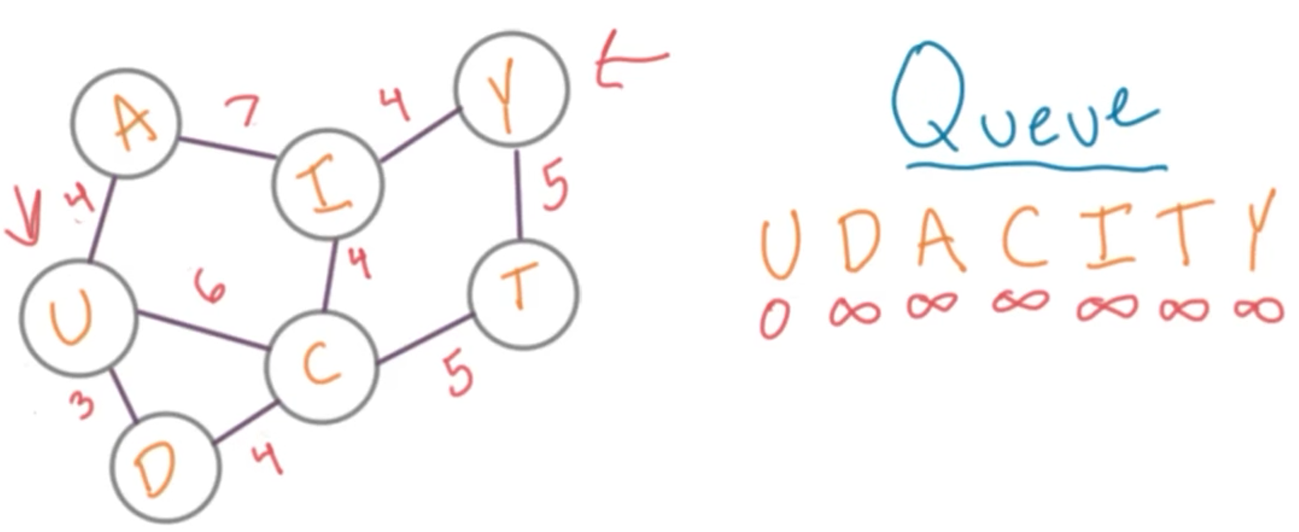 Y
A
7
4
I
5
4
U
6
4
T
C
5
3
D
4
Queue
U D A C I T Y
0 ∞ ∞ ∞ ∞ ∞ ∞